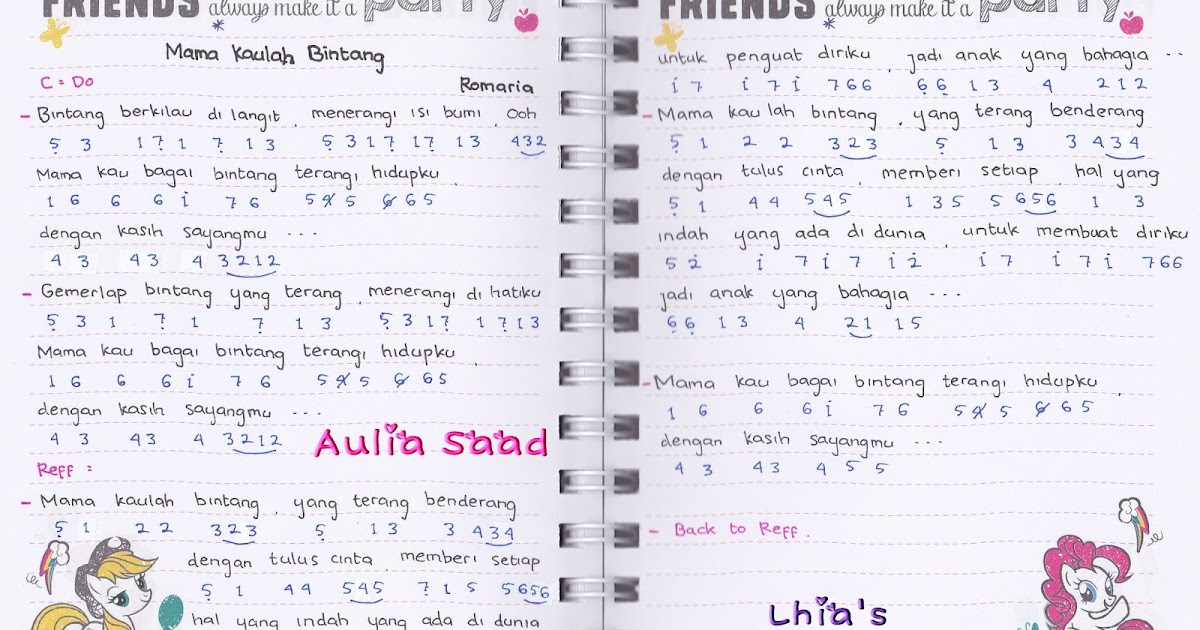 FRIENDS always make it a party
Mama Kaulah Bintang
C = Do
Romaria
- Bintang berkilau di langit, menerangi isi bumi, ooh
5̣ 3 1 7̣ 1 7̣ 1 3 5̣ 3 1 7̣ 1 7̣ 1 3 432
Mama kau bagai bintang terangi hidupku,
1 6 6 6 i 7 6 5 4̸ 5 6̸ 6 5
dengan kasih sayangmu ...
4 3 4 3 4 3212
- Gemerlap bintang yang terang, menerangi di hatiku
5̣ 3 1 7̣ 1 7̣ 1 3 5̣ 3 1 7̣ 1 7̣ 1 3
Mama kau bagai bintang terangi hidupku,
1 6 6 6 i 7 6 5 4̸ 5 6̸ 6 5
dengan kasih sayangmu ...
4 3 4 3 4 3212
Aulia Saad
Reff :
- Mama kaulah bintang, yang terang benderang
5̣ 1 2 2 323 5̣ 1 3 3 434
dengan tulus cinta, memberi setiap
5̣ 1 4 4 545 7 1 5 5656
hal yang indah yang ada di dunia
FRIENDS always make it a party
untuk penguat diriku, jadi anak yang bahagia ..
i 7 i 7 i 766 6̣ 6̣ 1 3 4 212
- Mama kau lah bintang, yang terang benderang
5̣ 1 2 2 323 5̣ 1 3 3 434
dengan tulus cinta, memberi setiap hal yang
5̣ 1 4 4 545 1 3 5 5 656 1 3
indah yang ada di dunia, untuk membuat diriku
5 2̇ i 7 i 7 i 2̇ i 7 i 7 i 766
jadi anak yang bahagia ...
6̣ 6̣ 1 3 4 21 1 5
- Mama kau bagai bintang terangi hidupku,
1 6 6 6 i 7 6 5 4̸ 5 6̸ 6 5
dengan kasih sayangmu ...
4 3 4 3 4 5 5
- Back to Reff.
Lhia's